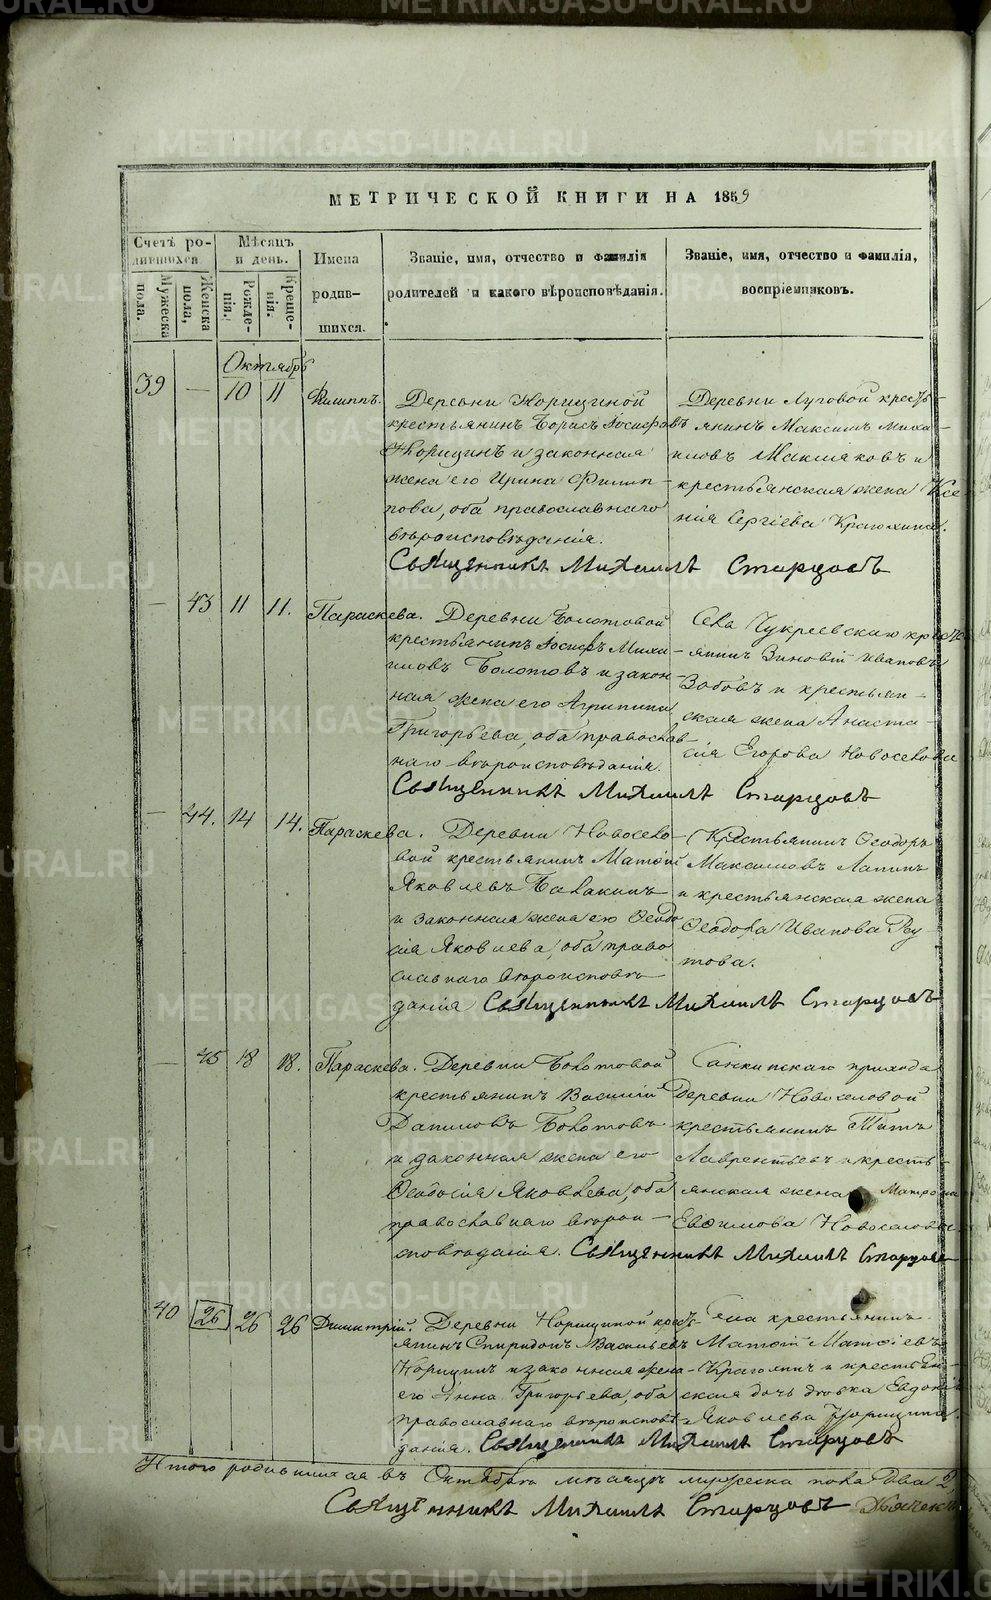 МЕТРИЧЕСКОЙ КНИГИ НА 1859
Счетъ ро-
дившихся
Мѣсяцъ
и день.
Имена
родив-
шихся.
Званіе, имя, отчество и фамилія
родителей и какого вѣроисповѣданія.
Званіе, имя, отчество и фамилія,
воспріемниковъ.
Мужеска
пола.
Женска
пола,
Рожде-
нія.
Креще-
нія.
Октябрь
39 — 10 11 Филиппъ.
Деревни Норициной
крестьянинъ Борисъ Іосифовъ
Норицинъ и законная
жена его Ирина Филип-
пова, оба православнаго
вѣроисповѣданія.
Деревни Луговой кресть-
янинъ Максимъ Миха-
иловъ и
крестьянская жена Ксе-
нія Сергіева
Священникъ Михаилъ Старцовъ
— 43 11 11. Параскева.
Деревни Болотовой
крестьянинъ Іосифъ Миха-
иловъ Болотовъ и закон-
ная жена его Агрипина
Григорьева, оба православ-
наго вѣроисповѣданія.
Села Чукреевскаго кресть-
янинъ Зиновій Ивановъ
Зобовъ и крестьян-
ская жена Анаста-
сія Егорова Новоселова
Священникъ Михаилъ Старцовъ
— 44. 14 14. Параскева.
Деревни Новосело-
вой крестьянинъ Матѳій
Яковлевъ
и законная жена его Ѳеодо
сія Яковлева, оба право
славнаго вѣроисповѣ
данія Священникъ Михаилъ Старцовъ
Крестьянинъ Ѳеодоръ
Максимовъ Лапинъ
и крестьянская жена
Ѳеодора Иванова Ру-
това.
— 45 18 18. Параскева.
Деревни Болотовой
крестьянинъ Василій
Даниловъ Болотовъ
и законная жена его
Ѳеодосія Яковлева, оба
православнаго вѣрои-
сповѣданія. Священникъ Михаилъ Старцовъ
прихода
Деревни Новоселовой
крестьянинъ Титъ
Лаврентьевъ и кресть-
янская жена Матрона
Евѳимова Новоселова
40 26 26 26 Димитрій.
Деревни Норициной кресть-
янинъ Спиридонъ Васильевъ
Норицинъ и законная жена
его Анна Григорьева, оба
православнаго вѣроисповѣ-
данія. Священникъ Михаилъ Старцовъ
крестьянинъ
Матѳій Матѳіевъ
и крестьян-
ская дочь дѣвка Евдокія
Яковлева Норицина.
Итого родившихся въ Октябрѣ мѣсяцѣ мужеска пола два 2
Священникъ Михаилъ Старцовъ Дьячекъ
METRIKI.GASO-URAL.RU